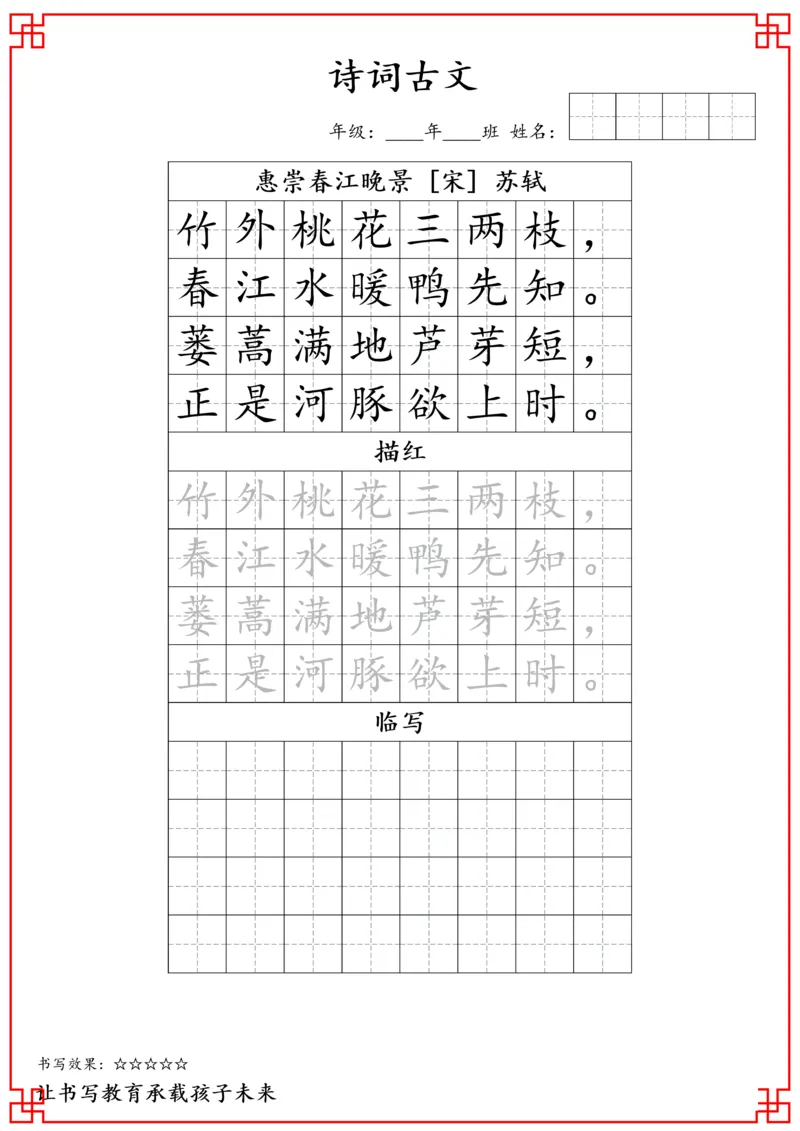 诗词古文
年级：____年____班 姓名：
惠崇春江晚景［宋］苏轼
竹外桃花三两枝，
春江水暖鸭先知。
蒌蒿满地芦芽短，
正是河豚欲上时。
描红
竹外桃花三两枝，
春江水暖鸭先知。
蒌蒿满地芦芽短，
正是河豚欲上时。
临写
书写效果：☆☆☆☆☆
让书写教育承载孩子未来